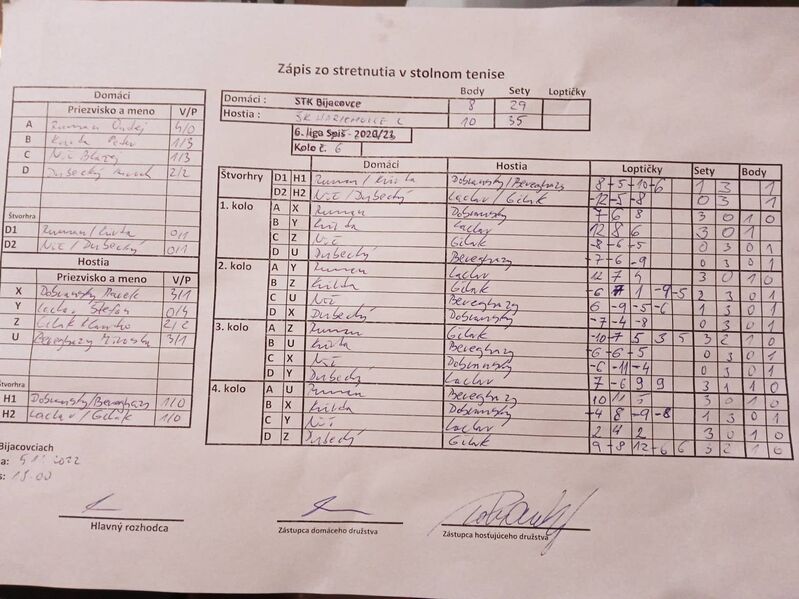 Zápis zo stretnutia v stolnom tenise
Body Sety Loptičky
Domáci : STK Bijacovce 8 29
Hostia : 10 35
6. liga Spiš - 2020/21
Kolo č. 6
Domáci
Priezvisko a meno V/P
A Ruman Ondrej 4/0
B Krivda Peter 1/3
C Nič Blažej 1/3
D Durbecký 2/2
Štvorhra
D1 Ruman/Krivda 0/1
D2 Nič/Durbecký 0/1
Hostia
Priezvisko a meno V/P
X Dobranský Marek 3/1
Y Štefan 0/4
Z Gdak 2/2
U Beveghazy 3/1
Štvorhra
H1 Dobransky/Beveghazy 1/0
H2 Laclav/Gdak 1/0
Domáci Hostia Loptičky Sety Body
Štvorhry D1 H1 Ruman/Krivda Dobransky/Beveghazy 8 -5 -10 -6 1 3 1
D2 H2 Nič/Durbecký Laclav/Gdak -12 -5 -8 0 3 1
1. kolo A X Ruman Dobransky 7 6 8 3 0 1 0
B Y Krivda Laclav 12 8 6 3 0 1
C Z Nič Gdak -8 -6 -5 0 3 0 1
D U Durbecký Beveghazy -7 -6 -9 0 3 0 1
2. kolo A Y Ruman Laclav 12 7 4 3 0 1 0
B Z Krivda Gdak -6 7 1 -9 -5 2 3 0 1
C U Nič Beveghazy 6 -9 -5 -6 1 3 0 1
D X Durbecký Dobransky -7 -4 -8 0 3 0 1
3. kolo A Z Ruman Gdak -10 7 5 3 5 3 2 1 0
B U Krivda Beveghazy -6 -6 -5 0 3 0 1
C X Nič Dobransky -6 -11 -4 0 3 0 1
D Y Durbecký Laclav 7 -6 9 9 3 1 1 0
4. kolo A U Ruman Beveghazy 10 11 5 3 0 1 0
B X Krivda Dobransky -4 8 -9 -8 1 3 0 1
C Y Nič Laclav 2 4 2 3 0 1 0
D Z Durbecký Gdak 9 -8 12 -6 6 3 2 1 0
Bijacovciach
15.00
Hlavný rozhodca
Zástupca domáceho družstva
Zástupca hosťujúceho družstva